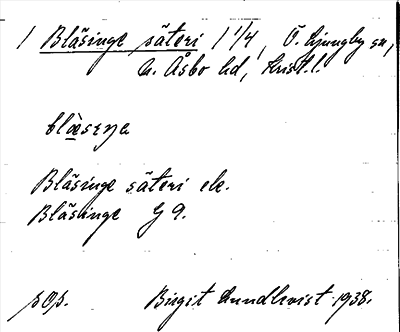 1 Bläsinge säteri 1 1/4, Ö. Ljungby sn,
N. Åsbo hd, Krist. l.
blæseŋe
Bläsinge säteri ek.
Bläsinge G 9.
sOs. Birgit Lundkvist 1938.